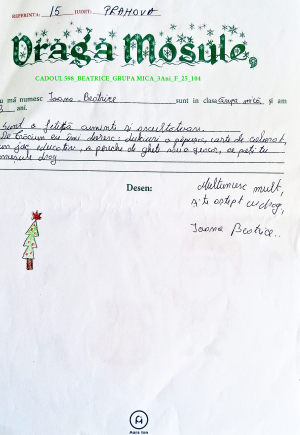 REFERINTA: 15 JUDET: PRAHOVA
Draga Mosule,
CADOUL 598_BEATRICE_GRUPA MICA_3Ani_F_25_104
u mă numesc Ioana Beatrice sunt in clasa Grupa mică și am
ani.
Sunt o fetiță cuminte și ascultătoare.
De Crăciun eu îmi doresc: dulciuri o păpușa, carte de colorat,
un joc educativ, o pereche de ghete sau o geacă, ce poți tu
moșule drag
Desen:
Multumesc mult,
și te aștept cu drag,
Ioana Beatrice..
Aura Ion